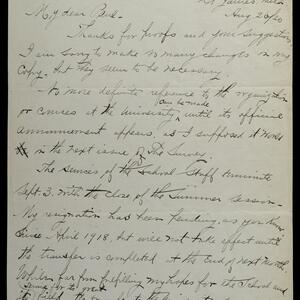 St James, Minn
Aug 20/20
My dear Paul -
Thanks for proofs and your suggestions
I am sorry to make so many changes in my
Copy. But they seem to be necessary.
A more definite reference to the organization
or courses at the University can be made until its official
announcement appears, as I supposed it would
in the next issue of The Survey.
The services of the School Staff terminate
Sept. 3. with the close of the Summer session -
My resignation has been pending, as you know,
Since April 1918, but will not take effect until
the transfer is completed at the end of next month.
While far from fulfilling my hopes for the School and
its field